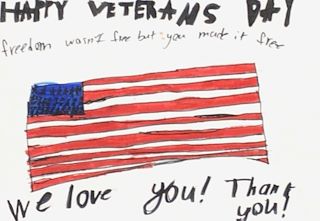 HAPPY VETERANS DAY
freedom wasn't free but you made it free
We love you! Thank you!